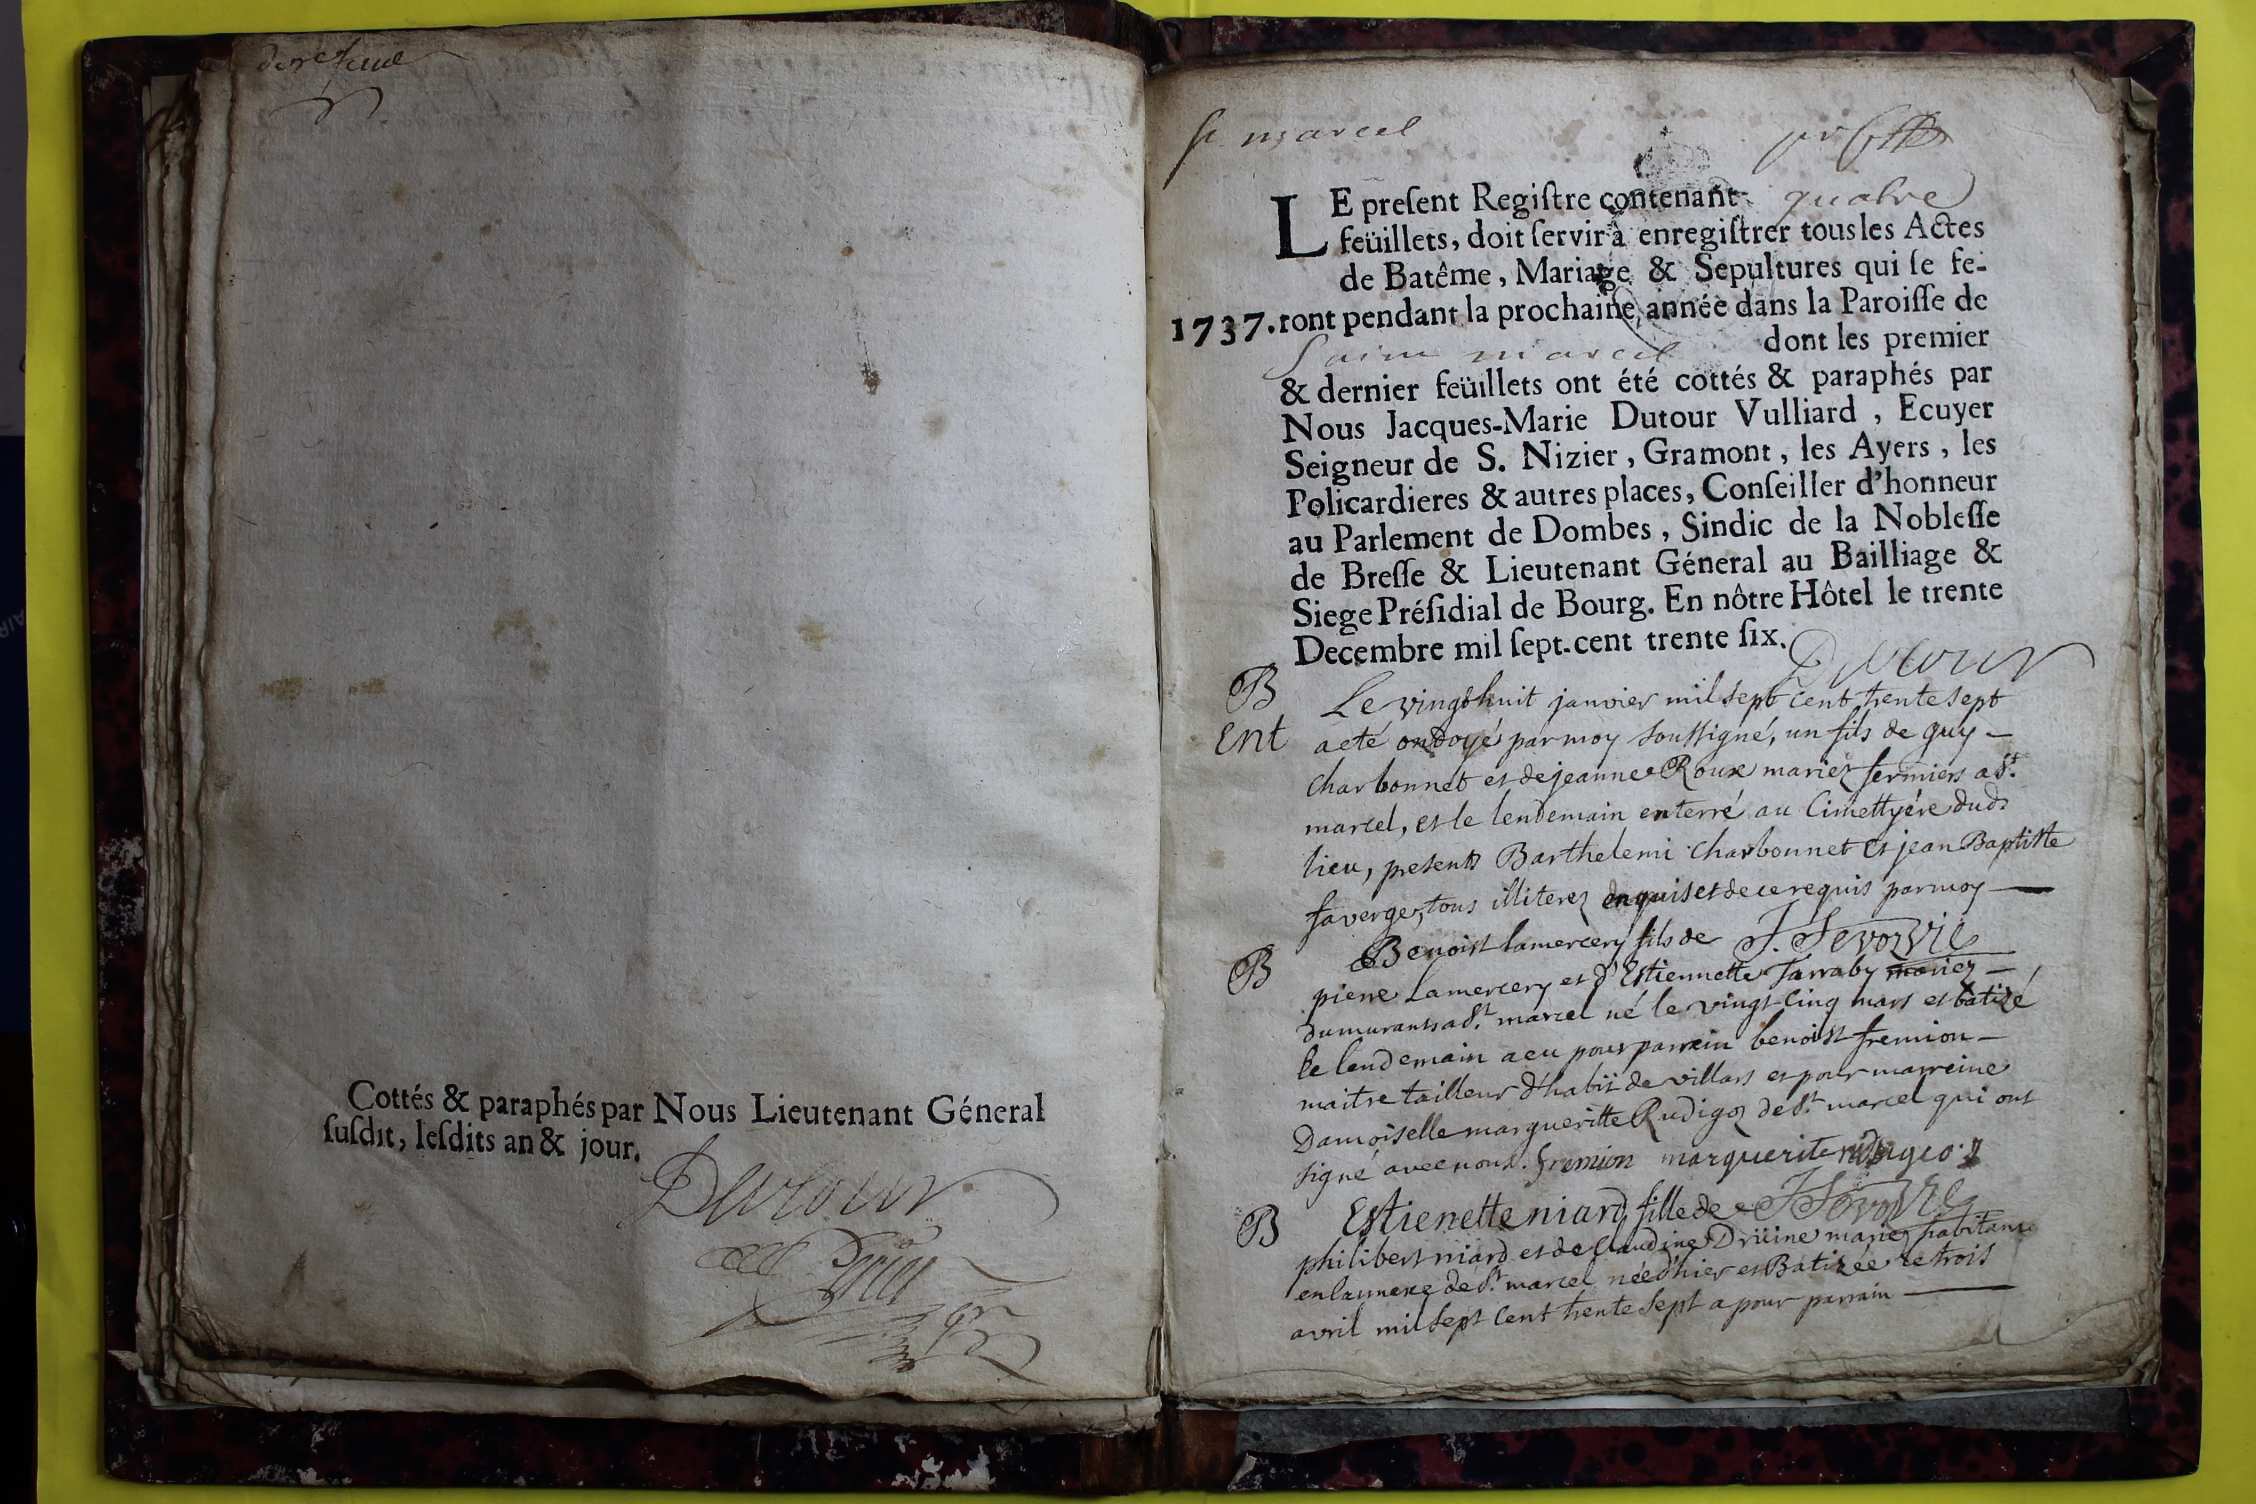 Cottés & paraphés par Nous Lieutenant Géneral
ſuſdit, leſdits an & jour.
Dutour
st marcel
LE preſent Regiſtre contenant quatre
feüillets, doit ſervir à enregiſtrer tous les Actes
de Batême, Mariage & Sepultures qui ſe fe-
1737. ront pendant la prochaine année dans la Paroiſſe de
Saint marcel dont les premier
& dernier feüillets ont été cottés & paraphés par
Nous Jacques-Marie Dutour Vulliard, Ecuyer
Seigneur de S. Nizier, Gramont, les Ayers, les
Policardieres & autres places, Conſeiller d'honneur
au Parlement de Dombes, Sindic de la Nobleſſe
de Breſſe & Lieutenant Géneral au Bailliage &
Siege Préſidial de Bourg. En nôtre Hôtel le trente
Decembre mil ſept-cent trente ſix.
Dutour
B Le vingt huit janvier mil sept cent trente sept
Ent a eté ondoyé par moy soussigné, un fils de guy
charbonnet et de jeanne Roux mariez fermiers a st.
marcel, et le lendemain enterré au Cimettyére dud.
lieu, presents Barthelemi charbonnet et jean Baptiste
faverge, tous illiterez enquis et de ce requis par moy
B Benoist lamercery fils de
pierre Lamercery et d'Estiennette Tarraby mariez
dumurants a st. marcel né le vingt Cinq mars et batizé
le lendemain a eu pour parrein benoist fremion
maitre tailleur d'habit de villars et pour marreine
Damoiselle margueritte Rudigoz de st. marcel qui ont
signé avec nous. fremion marguerite
B Estienette niard fille de
philibert niard et de Claudine Driiine mariez habitans
en l'annexe de st. marcel née d'hier et Batizée le trois
avril mil sept cent trente sept a pour parrain